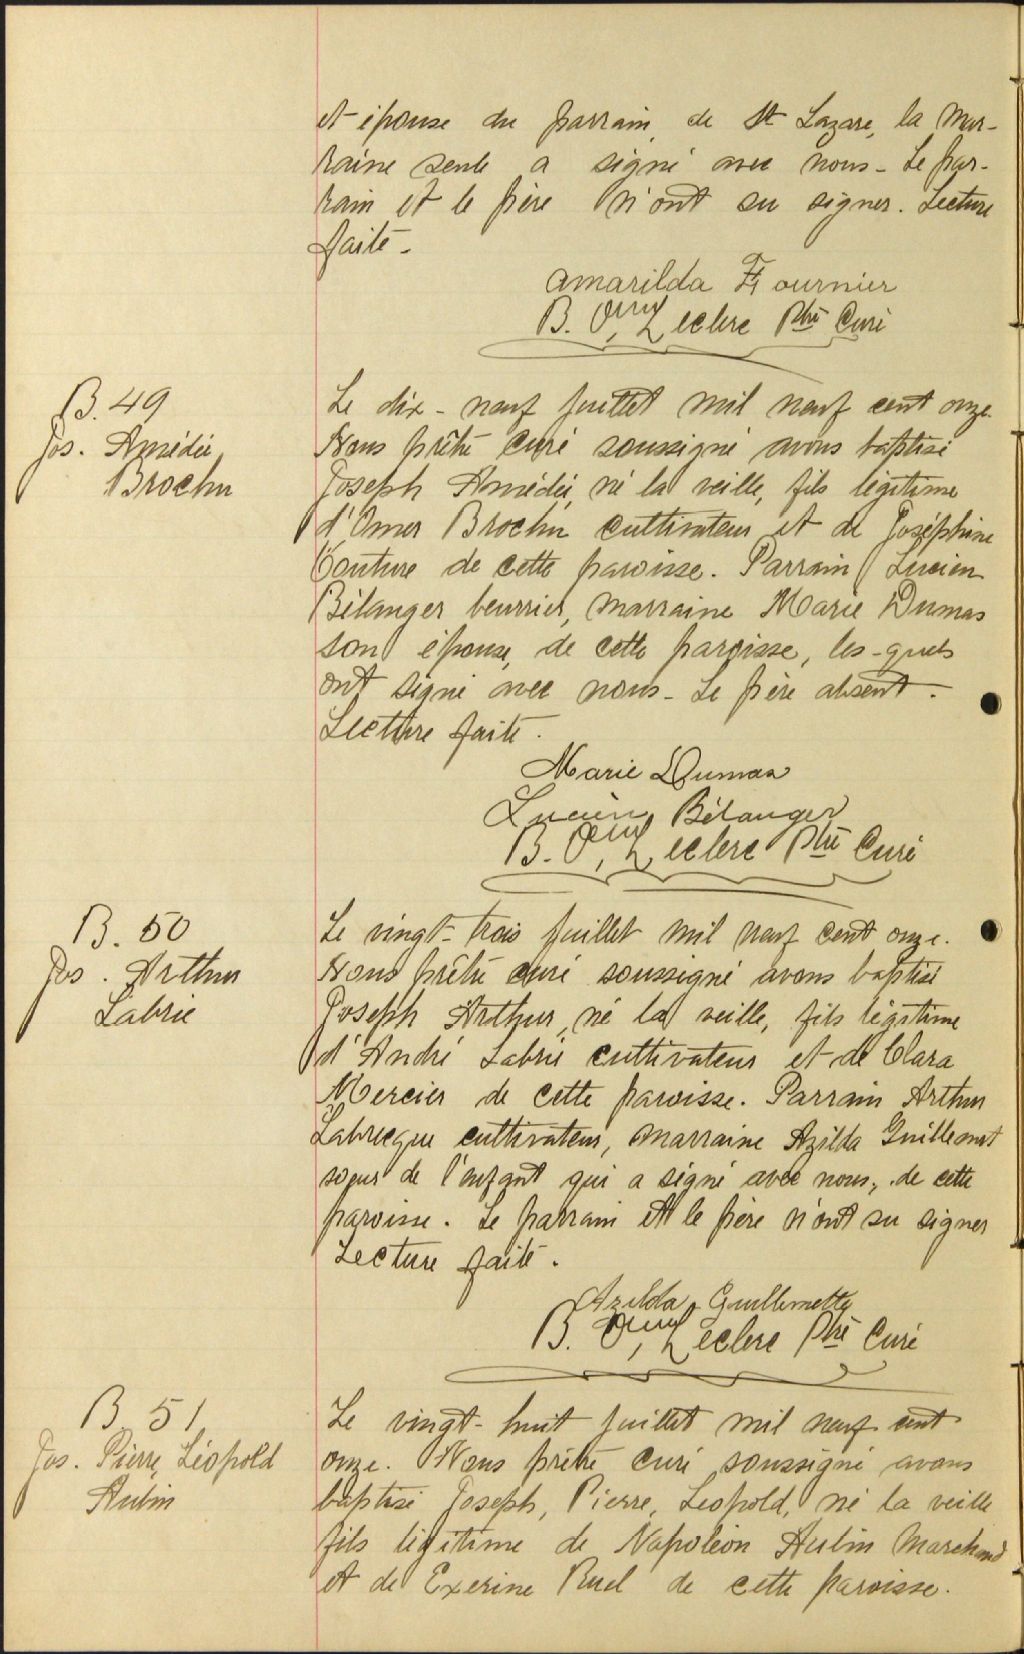 et épouse du parrain, de St Lazare, la mar-
raine seule a signé avec nous - Le par-
rain et le père n'ont su signer. Lecture
faite -
Amarilda Fournier
B. Omer Leclerc Ptre Curé
B. 49
Jos. Amédée
Brochu
Le dix-neuf juillet mil neuf cent onze.
Nous prêtre curé soussigné avons baptisé
Joseph Amédée, né la veille, fils légitime
d'Omer Brochu cultivateur et de Joséphine
Couture de cette paroisse. Parrain Lucien
Bélanger beurrier, marraine Marie Dumas
son épouse, de cette paroisse, les-quels
ont signé avec nous - Le père absent.
Lecture faite.
Marie Dumas
Lucien Bélanger
B. Omer Leclerc Ptre Curé
B. 50
Jos. Arthur
Labrie
Le vingt-trois juillet mil neuf cent onze.
Nous prêtre curé soussigné avons baptisé
Joseph Arthur, né la veille, fils légitime
d'André Labrie cultivateur et de Clara
Mercier de cette paroisse. Parrain Arthur
Labrecque cultivateur, marraine Azilda Guillemet
soeur de l'enfant qui a signé avec nous, de cette
paroisse. Le parrain et le père n'ont su signer
Lecture faite.
Azilda Guillemette
B. Omer Leclerc Ptre Curé
B 51
Jos. Pierre, Léopold
Aubin
Le vingt-huit juillet mil neuf cent
onze. Nous prêtre curé soussigné avons
baptisé Joseph, Pierre, Leopold, né la veille
fils légitime de Napoléon Aubin Marchand
et de Exerine Ruel de cette paroisse.